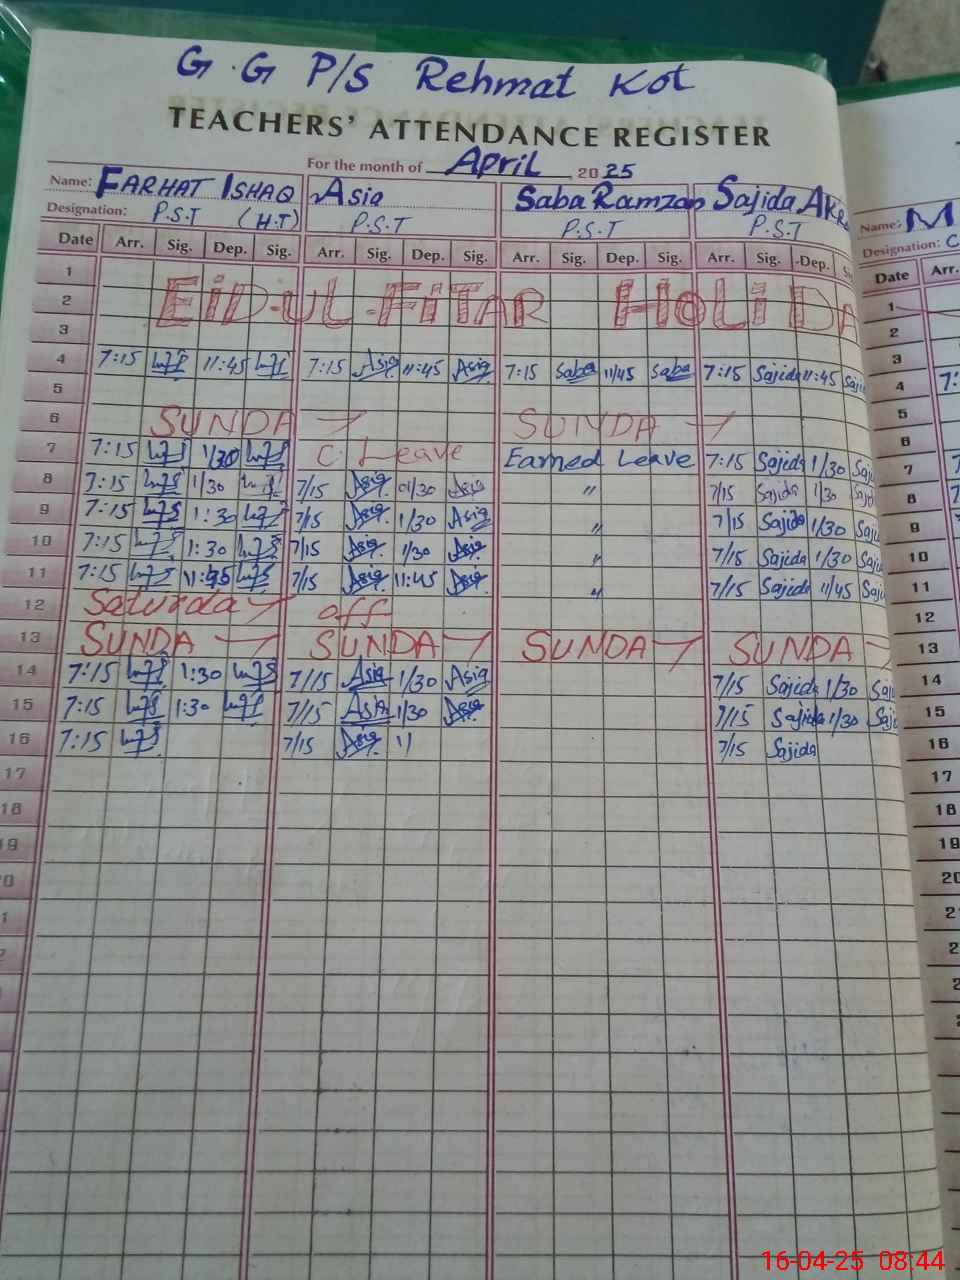 G.G P/S Rehmat Kot
TEACHERS' ATTENDANCE REGISTER
For the month of April 2025
Name: FARHAT ISHAQ Asia Saba Ramzan Sajida AKR
Designation: P.S.T (H.T) P.S.T P.S.T P.S.T
Date Arr. Sig. Dep. Sig. Arr. Sig. Dep. Sig. Arr. Sig. Dep. Sig. Arr. Sig. Dep.
1
2 EID-UL-FITAR HOLIDA
3
4 7:15 11:45 7:15 Asia 11:45 Asia 7:15 Saba 11/45 Saba 7:15 Sajida 11:45 Saji
5
6 SUNDAY SUNDAY
7 7:15 1/30 C. Leave Earned Leave 7:15 Sajida 1/30 Saj
8 7:15 1/30 7/15 Asia 01/30 Asia " 7/15 Sajida 1/30 Saj
9 7:15 1:30 7/15 Asia 1/30 Asia " 7/15 Sajida 1/30 Saj
10 7:15 1:30 7/15 Asia 1/30 Asia " 7/15 Sajida 1/30 Saj
11 7:15 11:45 7/15 Asia 11:45 Asia " 7/15 Sajida 11/45 Saj
12 Saturday off
13 SUNDAY SUNDAY SUNDAY SUNDAY
14 7:15 1:30 7/15 Asia 1/30 Asia 7/15 Sajida 1/30 Saj
15 7:15 1:30 7/15 Asia 1/30 Asia 7/15 Sajida 1/30 Saji
16 7:15 7/15 Asia 1/ 7/15 Sajida
17
18
19
Name: M
Designation: C
Date Arr.
1
2
3
4 7:
5
6
7
8
9
10
11
12
13
14
15
16
17
18
19
20
16-04-25 08:44